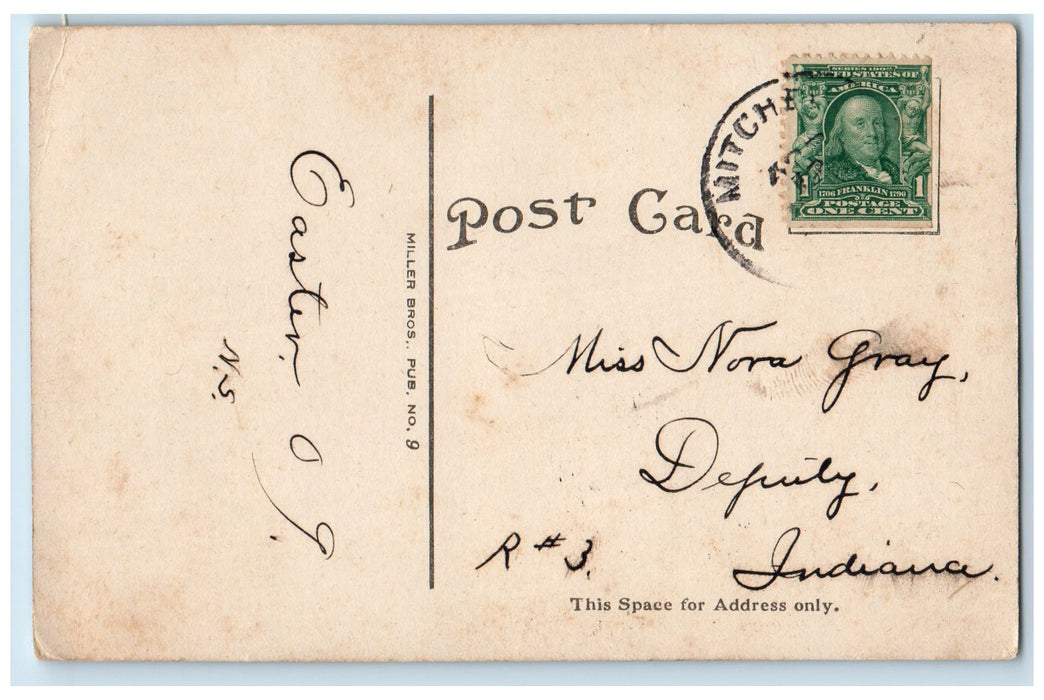 Easter. '09.
N.S.
MILLER BROS., PUB. NO. 9
Post Card
MITCHE
SERIES 1902
UNITED STATES OF
AMERICA
1 1706 FRANKLIN 1790 1
POSTAGE
ONE CENT
Miss Nora Gray,
Deputy,
R # 3.
Indiana.
This Space for Address only.